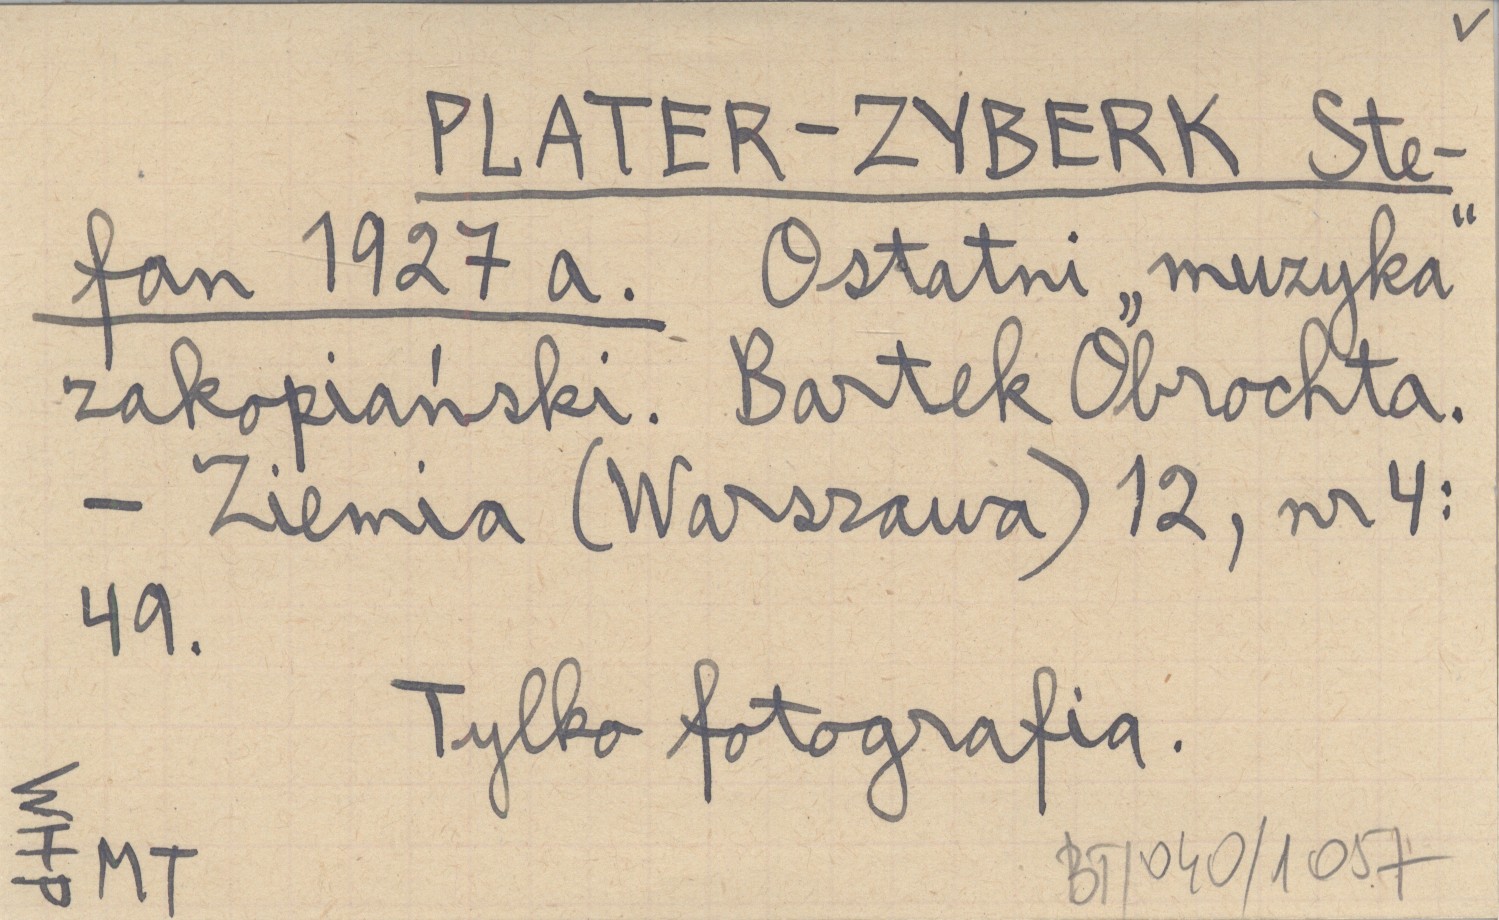 ✓
PLATER-ZYBERK Ste-
fan 1927 a. Ostatni „muzyka“
zakopiański. Bartek Obrochta.
– Ziemia (Warszawa) 12, nr 4:
49.
Tylko fotografia.
WHP
MT
BT/040/1057